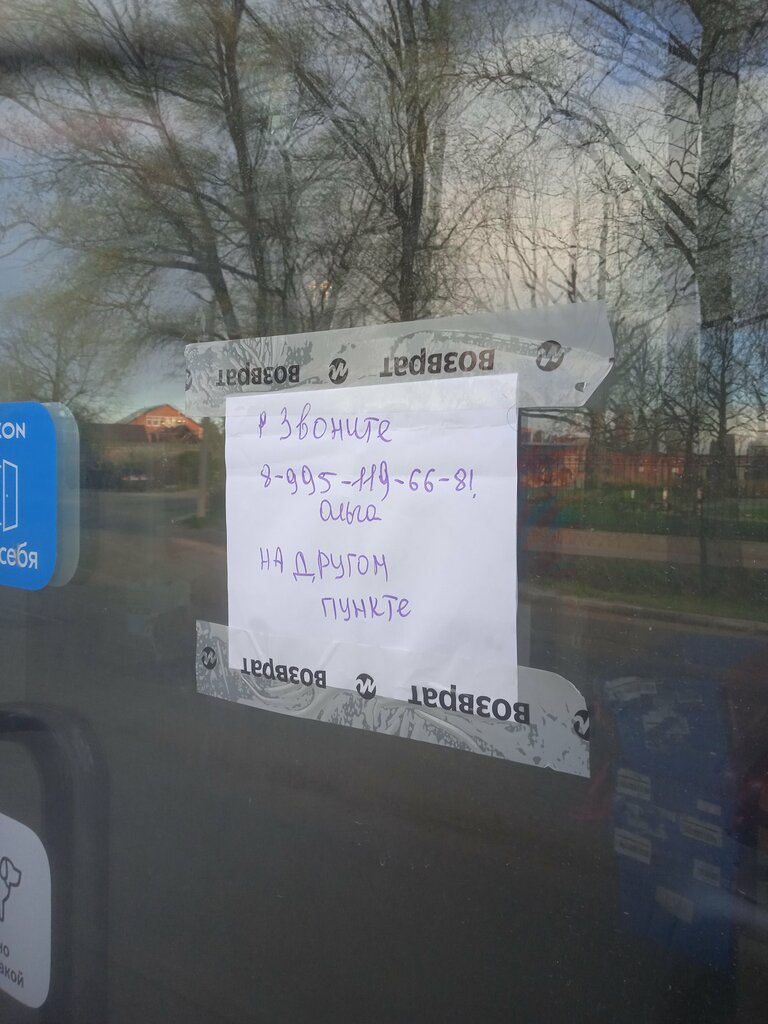 возврат возврат
Звоните
8-995-119-66-8!
Ольга
на другом
пункте
возврат возврат
ZON
себя
но
акой